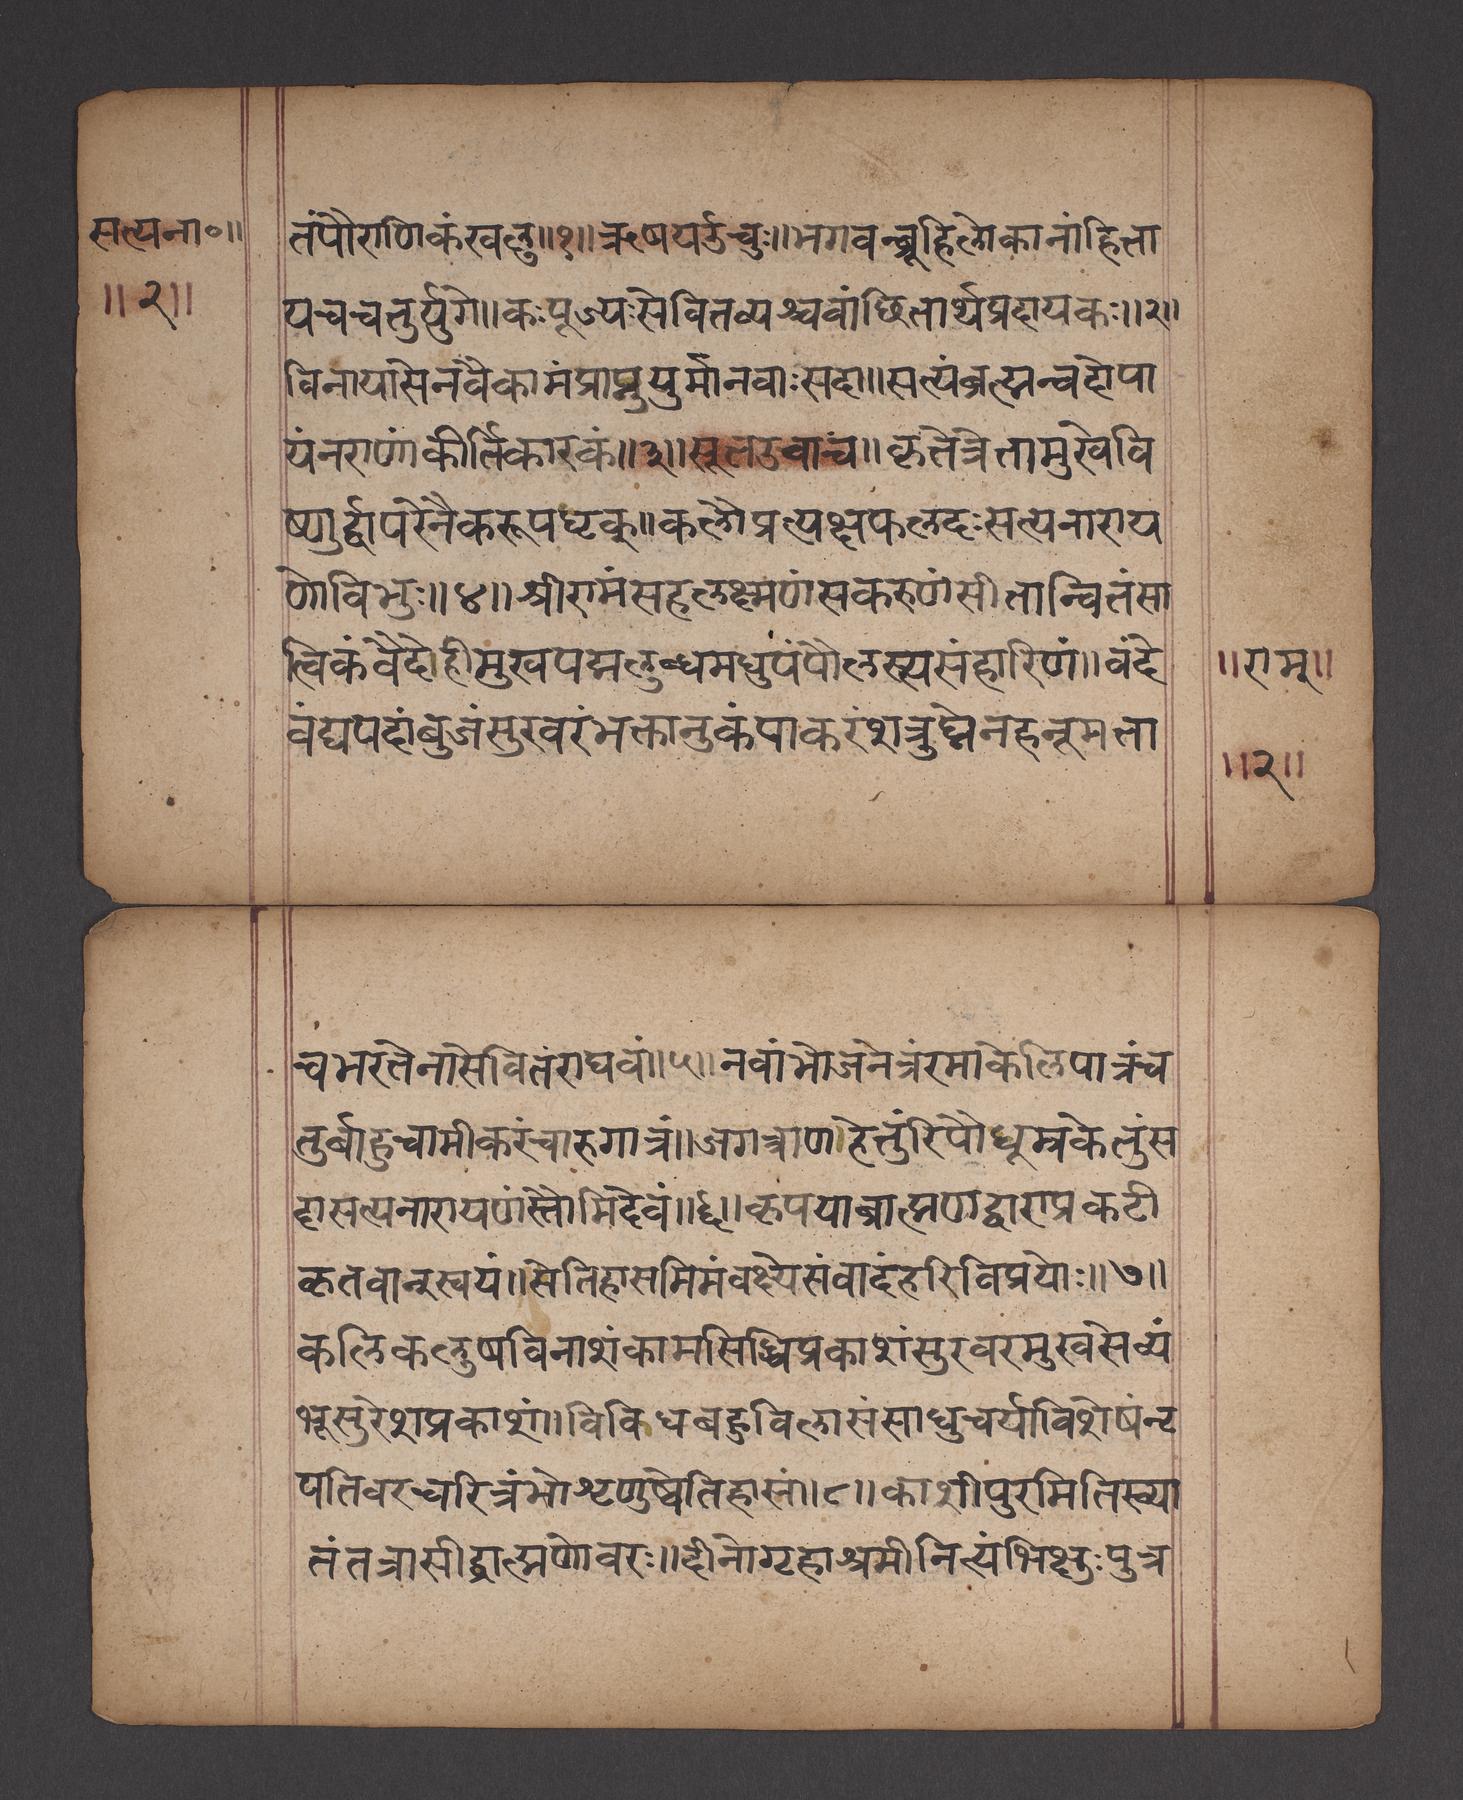 सत्यना०॥
॥२॥
तंपौराणिकंखलु॥१॥ऋषयऊचुः॥भगवन्ब्रूहिलोकानांहिता
यचचतुर्युगे॥कःपूज्यःसेवितव्यश्चवांछितार्थप्रदायकः॥२॥
विनायासेनवैकामंप्राप्नुयुर्मानवाःसदा॥सत्यंब्रह्मन्वदोपा
यंनराणांकीर्तिकारकं॥३॥सूतउवाच॥कृतेत्रेतामुखेवि
ष्णुर्द्वापरेनैकरूपधृक्॥कलौप्रत्यक्षफलदःसत्यनाराय
णोविभुः॥४॥श्रीरामंसहलक्ष्मणंसकरुणंसीतान्वितंसा
त्विकंवैदेहीमुखपद्मलुब्धमधुपंपौलस्त्यसंहारिणं॥वंदे
वंद्यपदांबुजंसुरवरंभक्तानुकंपाकरंशत्रुघ्नेनहनूमता
॥रामू॥
॥२॥
चभरतेनासेवितंराघवं॥५॥नवांभोजनेत्रंरमाकेलिपात्रंच
तुर्बाहुचामीकरंचारुगात्रं॥जगत्त्राणहेतुंरिपौधूम्रकेतुंस
दासत्यनारायणंस्तौमिदेवं॥६॥कृपयाब्राह्मणद्वाराप्रकटी
कृतवान्स्वयं॥सेतिहासमिमंवक्ष्येसंवादंहरिविप्रयोः॥७॥
कलिकलुषविनाशंकामसिद्धिप्रकाशंसुरवरमुखसेव्यं
भूसुरेशप्रकाशं॥विविधबहुविलासंसाधुचर्याविशेषंनृ
पतिवरचरित्रंभोशृणुष्वेतिहासं॥८॥काशीपुरमितिख्या
तंतत्रासीद्ब्राह्मणोवरः॥दीनोगृहाश्रमीनित्यंभिक्षुःपुत्र